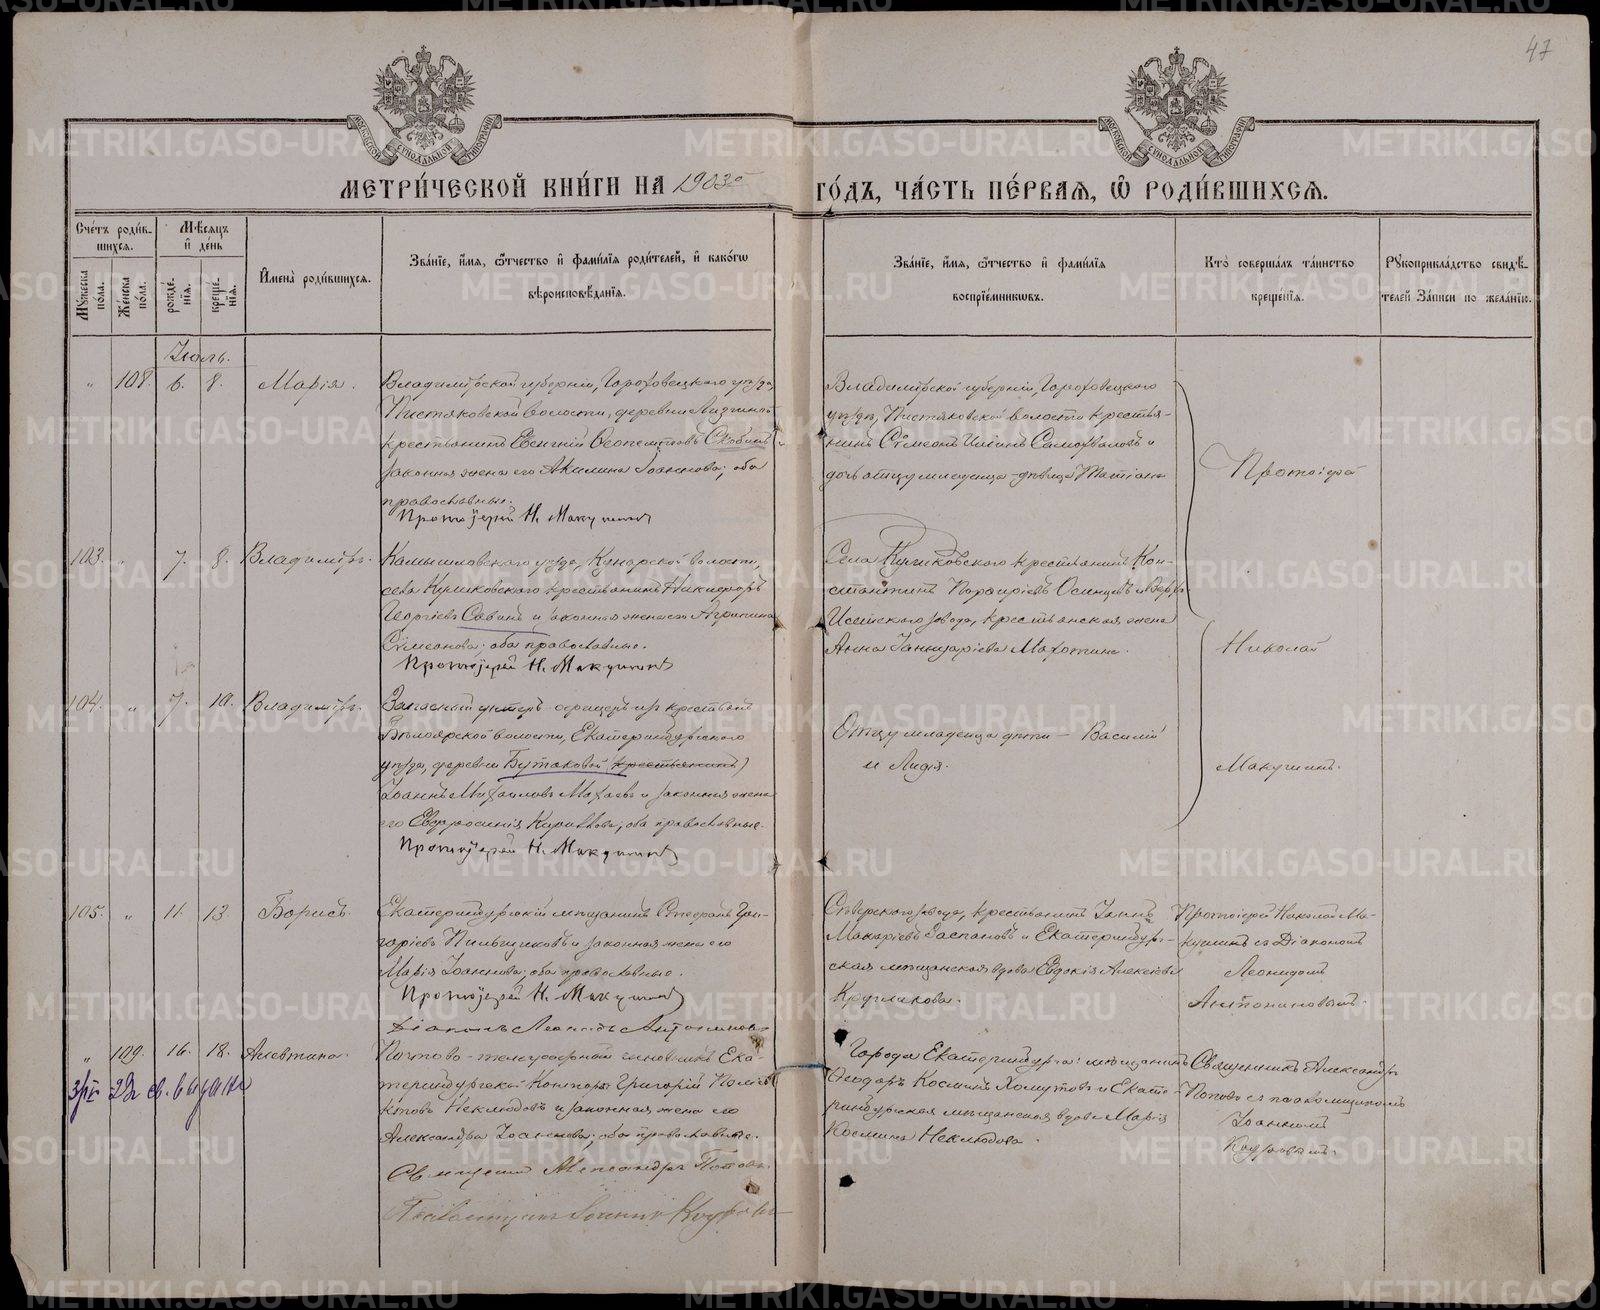 47
МОСКОВСКОЙ СѴНОДАЛЬНОЙ ТИПОГРАФІИ
МОСКОВСКОЙ СѴНОДАЛЬНОЙ ТИПОГРАФІИ
МЕТРИ́ЧЕСКОЙ КНИ́ГИ НА 1903й ГО́ДЪ, ЧА́СТЬ ПЕ́РВАѦ, Ѡ҆ РОДИ́ВШИХСѦ.
Сче́тъ роди́в-
шихся.
Мѣ́сяцъ
и҆ де́нь
Мꙋжеска
по́ла.
Же́нска
по́ла.
рожде́-
нїя.
креще́-
нїя.
И҆мена̀ роди́вшихся.
Зва́нїе, и҆́мя, ѻ҆́тчество и҆ фами́лїя роди́телей, и҆ како́гѡ
вѣроисповѣ́данїя.
Зва́нїе, и҆́мя, ѻ҆́тчество и҆ фами́лїя
воспрїе́мникѡвъ.
Кто̀ соверша́лъ та́инство
креще́нїя.
Рꙋкоприкла́дство свидѣ́-
телей за́писи по жела́нїю.
Іюль.
" 108. 6. 8. Марія.
Владимірской губерніи, Гороховецкаго уѣзда,
Пистяковской волости, деревни
крестьянинъ Евгеній Скобинъ
законная жена его Акилина Іоаннова; оба
православные.
Протоіерей Н. Макушинъ
Владимірской губерніи, Гороховецкаго
уѣзда, Пистяковской волости крестья-
нинъ Сѵмеонъ Ильинъ Самохваловъ и
дочь отцу младенца дѣвица Татіана
Протоіерей
103. " 7. 8. Владиміръ.
Камышловскаго уѣзда, Кунарской волости,
села Куликовскаго крестьянинъ Никифоръ
Георгіевъ Савинъ и законная жена его Агрипина
Сѵмеонова; оба православные.
Протоіерей Н. Макушинъ
Села Куликовскаго крестьянинъ Кон-
стантинъ Порфиріевъ Осинцевъ и Верхъ
Исетскаго завода, крестьянская жена
Анна Іаннуаріева Махотина.
Николай
104. " 7. 10. Владиміръ.
Запасный унтеръ-офицеръ изъ крестьянъ
Бѣлоярской волости, Екатеринбургскаго
уѣзда, деревни Бутаковой (крестьянинъ)
Іоаннъ Михаиловъ Махаевъ и законная жена
его Евфросинія Кириллова; оба православные.
Протоіерей Н. Макушинъ
Отцу младенца дѣти – Василій
и Лидія.
Макушинъ.
105. " 11. 13. Борисъ.
Екатеринбургскій мѣщанинъ Стефанъ Гри-
горіевъ Пильщиковъ и законная жена его
Марія Іоаннова; оба православные.
Протоіерей Н. Макушинъ
Діаконъ Леонидъ Антониновъ
Сѣверскаго завода, крестьянинъ Іоаннъ
Макаріевъ Заспановъ и Екатеринбург-
ская мѣщанская вдова Евдокія Алексіева
Круглякова.
Протоіерей Николай Ма-
кушинъ съ Діакономъ
Леонидомъ
Антониновымъ.
" 109. 16. 18. Алевтина.
Почтово-телеграфный чиновникъ Ека-
теринбургской Конторы Григорій
Неклюдовъ и законная жена его
Александра Іоаннова; оба православные.
Священникъ Александръ Поповъ.
Псаломщикъ Іоаннъ
Города Екатеринбурга: мѣщанинъ
Ѳеодоръ Космінъ Хомутовъ и Екате-
ринбургская мѣщанская вдова Марія
Космина Неклюдова.
Священникъ Александръ
Поповъ съ псаломщикомъ
Іоанномъ
св. выдана
METRIKI.GASO-URAL.RU